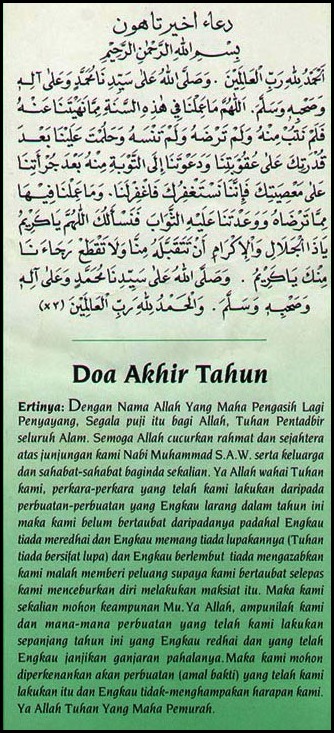 دعاء اخير تاهون
بِسْمِ اللهِ الرَّحْمٰنِ الرَّحِيْمِ
اَلْحَمْدُ لِلهِ رَبِّ الْعَالَمِيْنَ . وَصَلَّى اللهُ عَلٰى سَيِّدِنَا مُحَمَّدٍ وَعَلٰى آلِهِ
وَصَحْبِهِ وَسَلَّمَ . اَللّٰهُمَّ مَا عَمِلْنَا فِي هٰذِهِ السَّنَةِ مِمَّا نَهَيْتَنَا عَنْهُ
فَلَمْ نَتُبْ مِنْهُ وَلَمْ تَرْضَهُ وَلَمْ تَنْسَهُ وَحَلُمْتَ عَلَيْنَا بَعْدَ
قُدْرَتِكَ عَلٰى عُقُوْبَتِنَا وَدَعَوْتَنَا اِلَى التَّوْبَةِ مِنْهُ بَعْدَ جُرْأَتِنَا
عَلٰى مَعْصِيَتِكَ فَاِنَّا نَسْتَغْفِرُكَ فَاغْفِرْلَنَا . وَمَا عَمِلْنَا فِيْهَا
مِمَّا تَرْضَاهُ وَوَعَدْتَنَا عَلَيْهِ الثَّوَابَ فَنَسْأَلُكَ اللّٰهُمَّ يَا كَرِيْمُ
يَا ذَا الْجَلَالِ وَالْاِكْرَامِ اَنْ تَتَقَبَّلَهُ مِنَّا وَلَا تَقْطَعْ رَجَاءَنَا
مِنْكَ يَا كَرِيْمُ . وَصَلَّى اللهُ عَلٰى سَيِّدِنَا مُحَمَّدٍ وَعَلٰى آلِهِ
وَصَحْبِهِ وَسَلَّمَ . وَالْحَمْدُ لِلهِ رَبِّ الْعَالَمِيْنَ (٣×)
Doa Akhir Tahun
Ertinya: Dengan Nama Allah Yang Maha Pengasih Lagi
Penyayang, Segala puji itu bagi Allah, Tuhan Pentadbir
seluruh Alam. Semoga Allah cucurkan rahmat dan sejahtera
atas junjungan kami Nabi Muhammad S.A.W. serta keluarga
dan sahabat-sahabat baginda sekalian. Ya Allah wahai Tuhan
kami, perkara-perkara yang telah kami lakukan daripada
perbuatan-perbuatan yang Engkau larang dalam tahun ini
maka kami belum bertaubat daripadanya padahal Engkau
tiada meredhai dan Engkau memang tiada lupakannya (Tuhan
tiada bersifat lupa) dan Engkau berlembut tiada mengazabkan
kami malah memberi peluang supaya kami bertaubat selepas
kami menceburkan diri melakukan maksiat itu. Maka kami
sekalian mohon keampunan Mu. Ya Allah, ampunilah kami
dan mana-mana perbuatan yang telah kami lakukan
sepanjang tahun ini yang Engkau redhai dan yang telah
Engkau janjikan ganjaran pahalanya. Maka kami mohon
diperkenankan akan perbuatan (amal bakti) yang telah kami
lakukan itu dan Engkau tidak-menghampakan harapan kami.
Ya Allah Tuhan Yang Maha Pemurah.